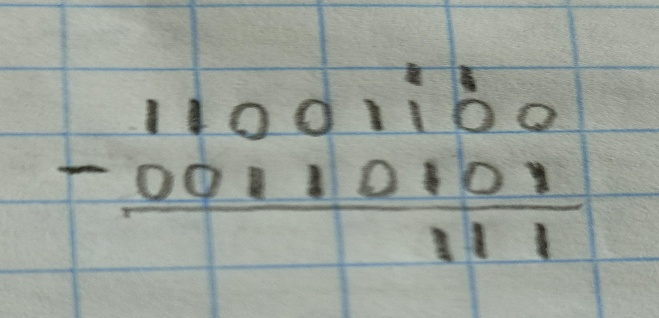 1 1
1 1 0 0 1 1 0 0
- 0 0 1 1 0 1 0 1
1 1 1